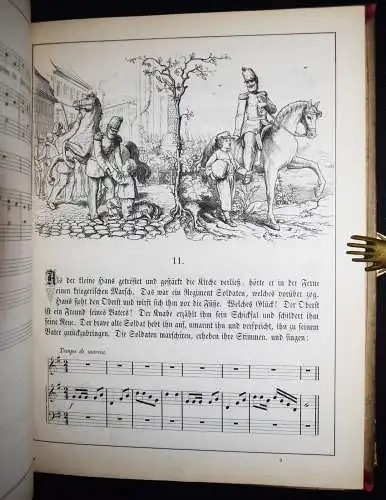 11.
Als der kleine Hans getröstet und gestärkt die Kirche verließ, hörte er in der Ferne
einen kriegerischen Marsch. Das war ein Regiment Soldaten, welches vorüber zog.
Hans sieht den Oberst und wirft sich ihm vor die Füße. Welches Glück! Der Oberst
ist ein Freund seines Vaters! Der Knabe erzählt ihm sein Schicksal und schildert ihm
seine Reue. Der brave alte Soldat hebt ihn auf, umarmt ihn und verspricht, ihn zu seinem
Vater zurückzubringen. Die Soldaten marschiren, erheben ihre Stimmen, und singen:
Tempo di marcia.
f